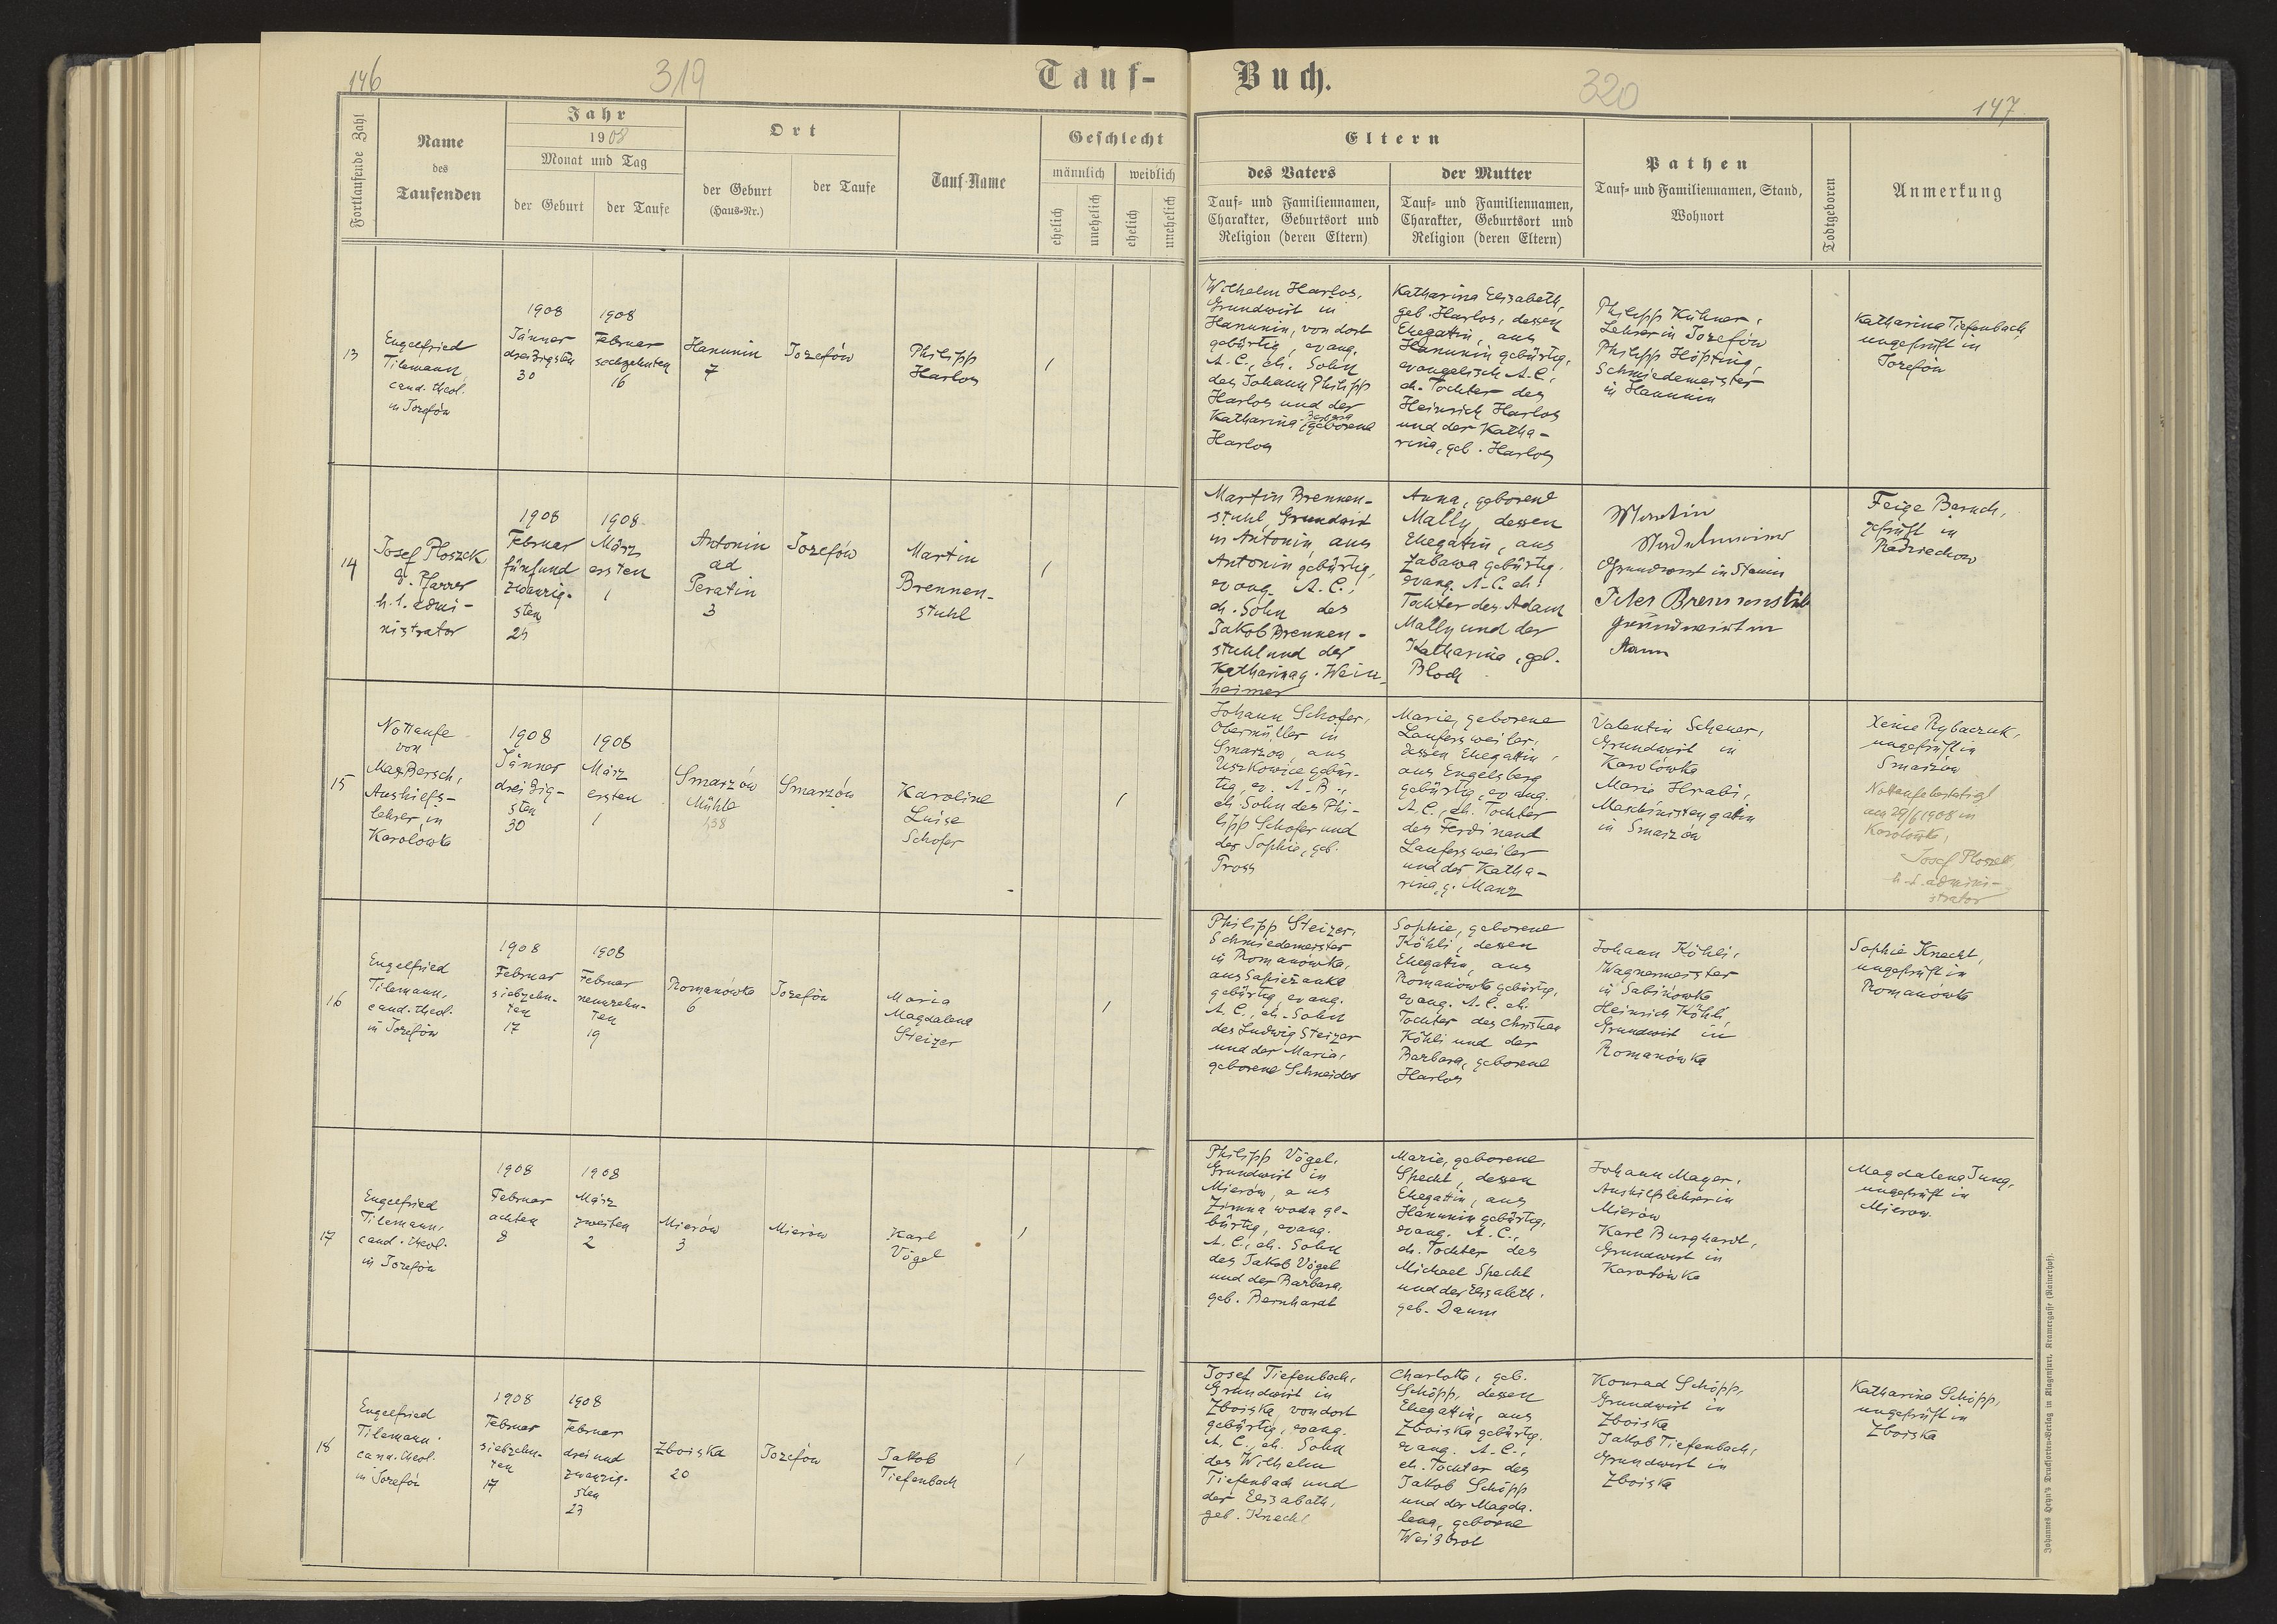 146
319
Tauf-
Buch.
320
147
Fortlaufende Zahl
Name
des
Taufenden
Jahr
1908
Monat und Tag
der Geburt
der Taufe
Ort
der Geburt
(Haus-Nr.)
der Taufe
Tauf-Name
Geschlecht
männlich
weiblich
ehelich
unehelich
ehelich
unehelich
Eltern
des Vaters
Tauf- und Familiennamen,
Charakter, Geburtsort und
Religion (deren Eltern)
der Mutter
Tauf- und Familiennamen,
Charakter, Geburtsort und
Religion (deren Eltern)
Pathen
Tauf- und Familiennamen, Stand,
Wohnort
Todtgeboren
Anmerkung
13
Engelfried
Tilemann
cand. theol.
in Jozefów
1908
Jänner
dreißigsten
30
1908
Februar
sechzehnten
16
Hanunin
7
Jozefów
Philipp
Harlos
1
Wilhelm Harlos,
Grundwirt in
Hanunin, von dort
gebürtig, evang.
A. C., eh. Sohn
des Johann Philipp
Harlos und der
Katharina Barbara geborene
Harlos
Katharina Elisabeth,
geb. Harlos, dessen
Ehegattin, aus
Hanunin gebürtig,
evangelisch A. C.,
eh. Tochter des
Heinrich Harlos
und der Katha-
rina, geb. Harlos
Philipp Kühner,
Lehrer in Jozefów
Philipp Höpfing,
Schmiedemeister
in Hanunin
Katharina Tiefenbach,
ungeprüft in
Jozefów
14
Josef Ploszek
g. Pfarrer
h. l. admi-
nistrator
1908
Februar
fünfund
zwanzig-
sten
25
1908
März
ersten
1
Antonin
ad
Peratin
3
Jozefów
Martin
Brennen-
stuhl
1
Martin Brennen-
stuhl, Grundwirt
in Antonin aus
Antonin gebürtig,
evang. A. C.,
eh. Sohn des
Jakob Brennen-
stuhl und der
Katharina g. Wein-
heimer
Anna, geborene
Mally, dessen
Ehegattin, aus
Zabawa gebürtig,
evang. A. C. eh.
Tochter des Adam
Mally und der
Katharina, geb.
Bloch
Martin
Grundwirt in Stanin
Peter Brennenstuhl
Grundwirt in
Feige Baruch,
geprüft in
Radziechow
15
Nottaufe
von
Max Bersch,
Aushilfs-
lehrer, in
Karolówka
1908
Jänner
dreißig-
sten
30
1908
März
ersten
1
Smarzów
Mühle
438
Smarzów
Karoline
Luise
Schofer
1
Johann Schofer,
Obermüller in
Smarzow, aus
Uszkowice gebür-
tig, ev. A. B.,
eh. Sohn des Phi-
lipp Schofer und
der Sophie, geb.
Pross
Marie, geborene
Laufersweiler,
dessen Ehegattin,
aus Engelsberg
gebürtig, evang.
A. C., eh. Tochter
des Ferdinand
Laufersweiler
und der Katha-
rina, g. Manz
Valentin Scherer,
Grundwirt in
Karolówka
Marie Hrabi,
Maschinistengattin
in Smarzów
Xenie Rybaczuk,
ungeprüft in
Smarzów
Nottaufe bestätigt
am 29/6 1908 in
Karolówka,
Josef Ploszek,
h. l. admini-
strator
16
Engelfried
Tilemann,
cand. theol.
in Jozefów
1908
Februar
siebzehn-
ten
17
1908
Februar
neunzehn-
ten
19
Romanówka
6
Jozefów
Maria
Magdalena
Steizer
1
Philipp Steizer,
Schmiedemeister
in Romanówka,
aus Sapiezanka
gebürtig, evang.
A. C., eh. Sohn
des Ludwig Steizer
und der Maria,
geborene Schneider
Sophie, geborene
Köhli, dessen
Ehegattin, aus
Romanówka gebürtig,
evang. A. C. eh.
Tochter des Christian
Köhli und der
Barbara, geborene
Harlos
Johann Köhli,
Wagnermeister
in Sabinówka
Heinrich Köhli,
Grundwirt in
Romanówka
Sophie Knecht,
ungeprüft in
Romanówka
17
Engelfried
Tilemann,
cand. theol.
in Jozefów
1908
Februar
achten
8
1908
März
zweiten
2
Mierów
3
Mierów
Karl
Vögel
1
Philipp Vögel,
Grundwirt in
Mierów, aus
Zimna woda ge-
bürtig, evang.
A. C., eh. Sohn
des Jakob Vögel
und der Barbara,
geb. Bernhardt
Marie, geborene
Specht, dessen
Ehegattin, aus
Hanunin gebürtig,
evang. A. C.,
eh. Tochter des
Michael Specht
und der Elisabeth,
geb. Daum
Johann Mager,
Aushilfslehrer in
Mierów
Karl Burghardt,
Grundwirt in
Karolówka
Magdalena Jung,
ungeprüft in
Mierow.
18
Engelfried
Tilemann
cand. theol.
in Jozefów
1908
Februar
siebzehn-
ten
17
1908
Februar
dreiund
zwanzig-
sten
23
Zboiska
20
Jozefów
Jakob
Tiefenbach
1
Josef Tiefenbach,
Grundwirt in
Zboiska von dort
gebürtig, evang.
A. C., eh. Sohn
des Wilhelm
Tiefenbach und
der Elisabeth,
geb. Knecht
Charlotte, geb.
Schöpp, dessen
Ehegattin, aus
Zboiska gebürtig,
evang. A. C.,
eh. Tochter des
Jakob Schöpp
und der Magda-
lena, geborene
Weißbrot
Konrad Schöpp,
Grundwirt in
Zboiska
Jakob Tiefenbach,
Grundwirt in
Zboiska
Katharina Schöpp,
ungeprüft in
Zboiska
Johannes Heyn's Drucksorten-Verlag in Klagenfurt, Kramergasse (Rainerhof).